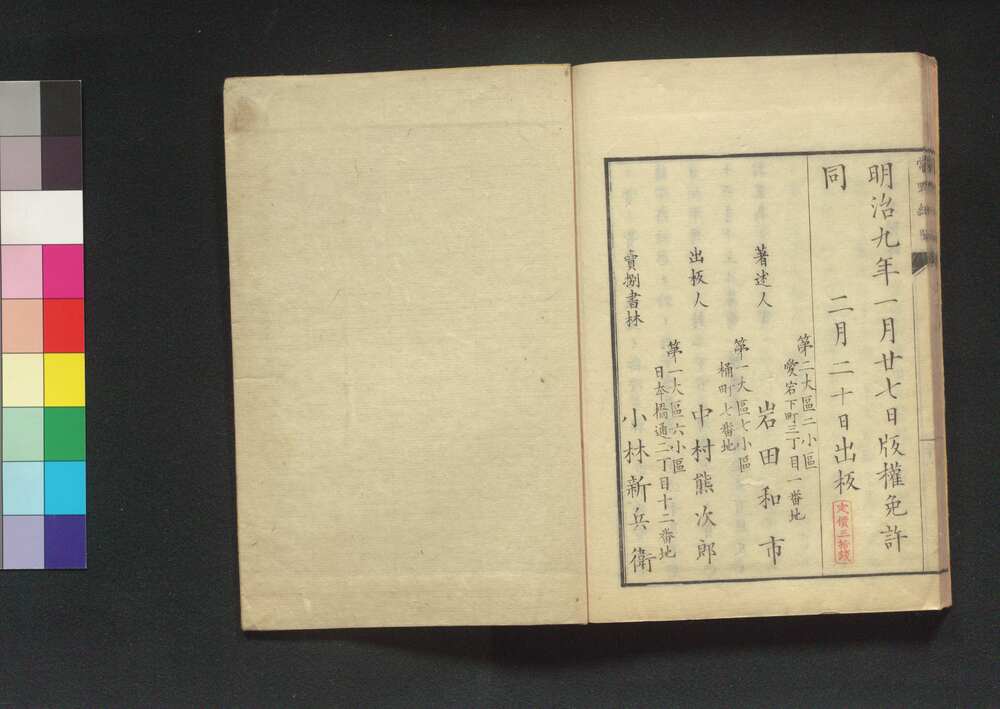 明治九年一月廿七日版權免許
同　二月二十日出板
定價三拾錢
第二大區二小區
愛宕下町三丁目一番地
著述人　岩田和市
第一大區七小區
桶町七番地
出板人　中村熊次郎
第一大區六小區
日本橋通二丁目十二番地
賣捌書林　小林新兵衛